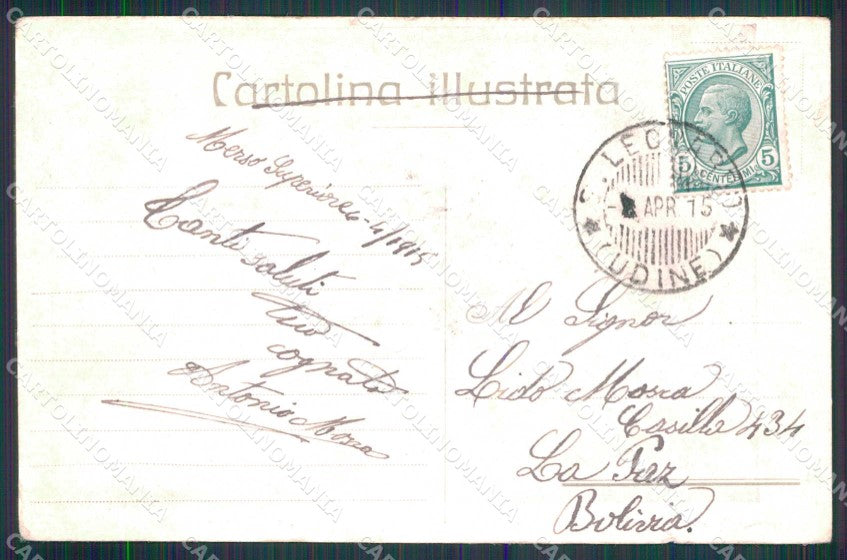 Cartolina illustrata
POSTE ITALIANE
5 5
CENTESIMI
S. LEONARDO
APR 15
(UDINE)
Merso Superiore 6-4/1915
Tanti saluti
tuo
cognato
Antonio Mora
Al Signor
Lido Mora
Casilla 434
La Paz
Bolivia.
CARTOLINOMANIA